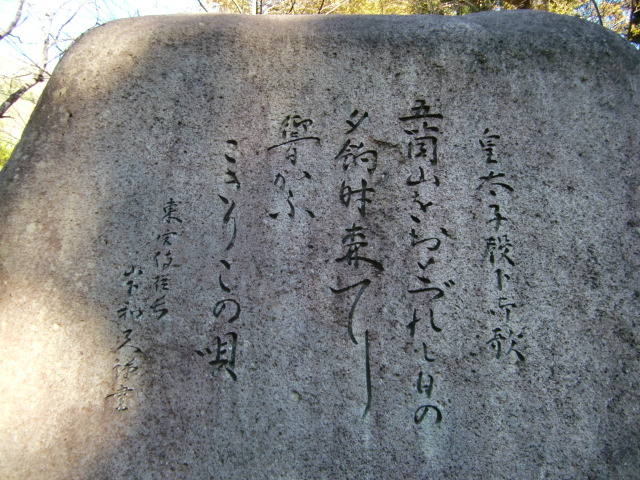 皇太子殿下御歌
五箇山をおとづれし日の
夕餉時森に
響かふ
こきりこの唄
東宮侍従長
山下和夫謹書